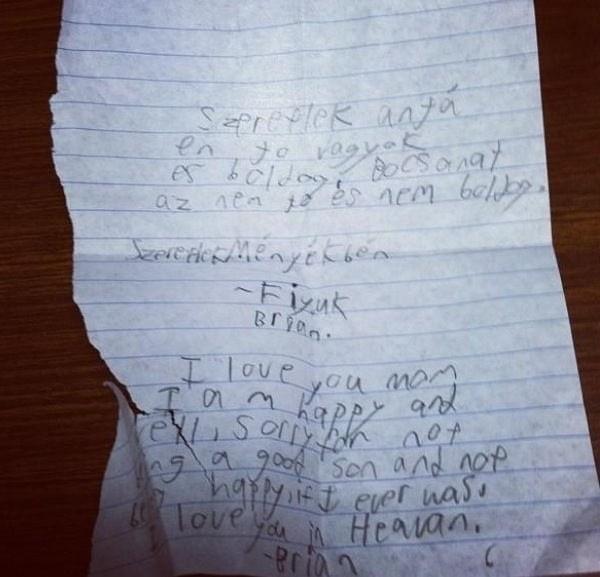 Szeretlek anyá
en jo vagyok
es boldog, Bocsanat
az nen jo es nem boldog.
Szeretlek Ményékbén
~Fiyuk
Brian.
I love you mom
I am happy and
well, sorry for not
a good son and not
happy, if I ever was.
love you in Heavan.
-Brian